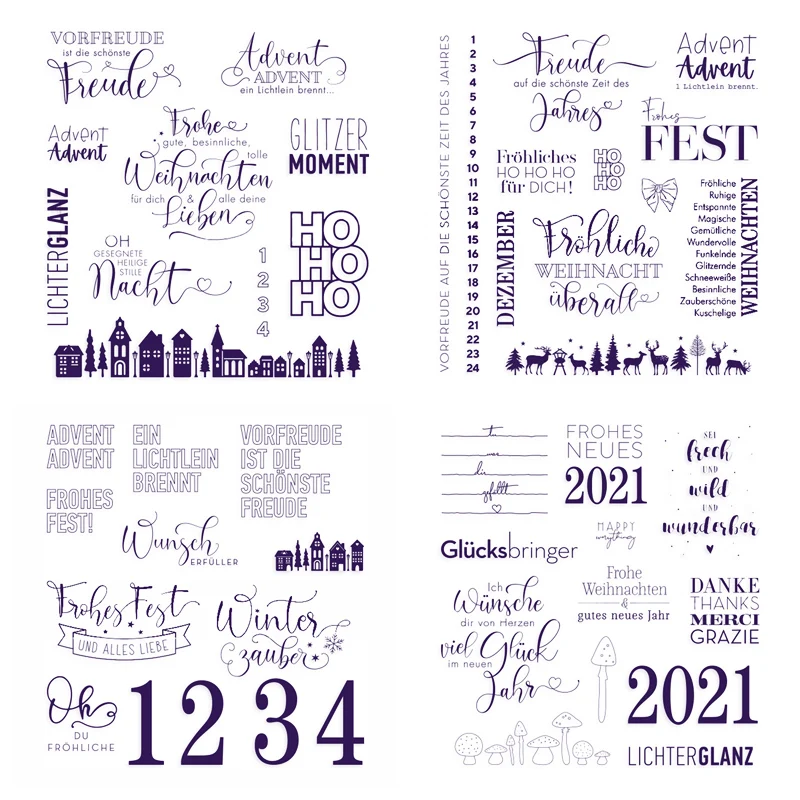 VORFREUDE
ist die schönste
Freude
Advent
ADVENT
ein Lichtlein brennt...
Advent
Advent
Frohe
gute, besinnliche,
tolle
Weihnachten
für dich & alle deine
Lieben
GLITZER
MOMENT
LICHTERGLANZ
OH
GESEGNETE
HEILIGE
STILLE
Nacht
1
2
3
4
HO
HO
HO
VORFREUDE AUF DIE SCHÖNSTE ZEIT DES JAHRES
1
2
3
4
5
6
7
8
9
10
11
12
13
14
15
16
17
18
19
20
21
22
23
24
Freude
auf die schönste Zeit des
Jahres
Advent
Advent
1 Lichtlein brennt.
Frohes
FEST
Fröhliches
HO HO HO
für DICH!
HO
HO
HO
DEZEMBER
Fröhliche
WEIHNACHT
überall
Fröhliche
Ruhige
Entspannte
Magische
Gemütliche
Wundervolle
Funkelnde
Glitzernde
Schneeweiße
Besinnliche
Zauberschöne
Kuschelige
WEIHNACHTEN
ADVENT
ADVENT
EIN
LICHTLEIN
BRENNT
VORFREUDE
IST DIE
SCHÖNSTE
FREUDE
FROHES
FEST!
Wunsch
ERFÜLLER
Frohes Fest
UND ALLES LIEBE
Winter
zauber
Oh
DU
FRÖHLICHE
1 2 3 4
tu
was
dir
gefällt
FROHES
NEUES
2021
SEI
frech
UND
wild
UND
wunderbar
HAPPY
everything
Glücksbringer
Ich
Wünsche
dir von Herzen
viel Glück
im neuen
Jahr
Frohe
Weihnachten
&
gutes neues Jahr
DANKE
THANKS
MERCI
GRAZIE
2021
LICHTERGLANZ